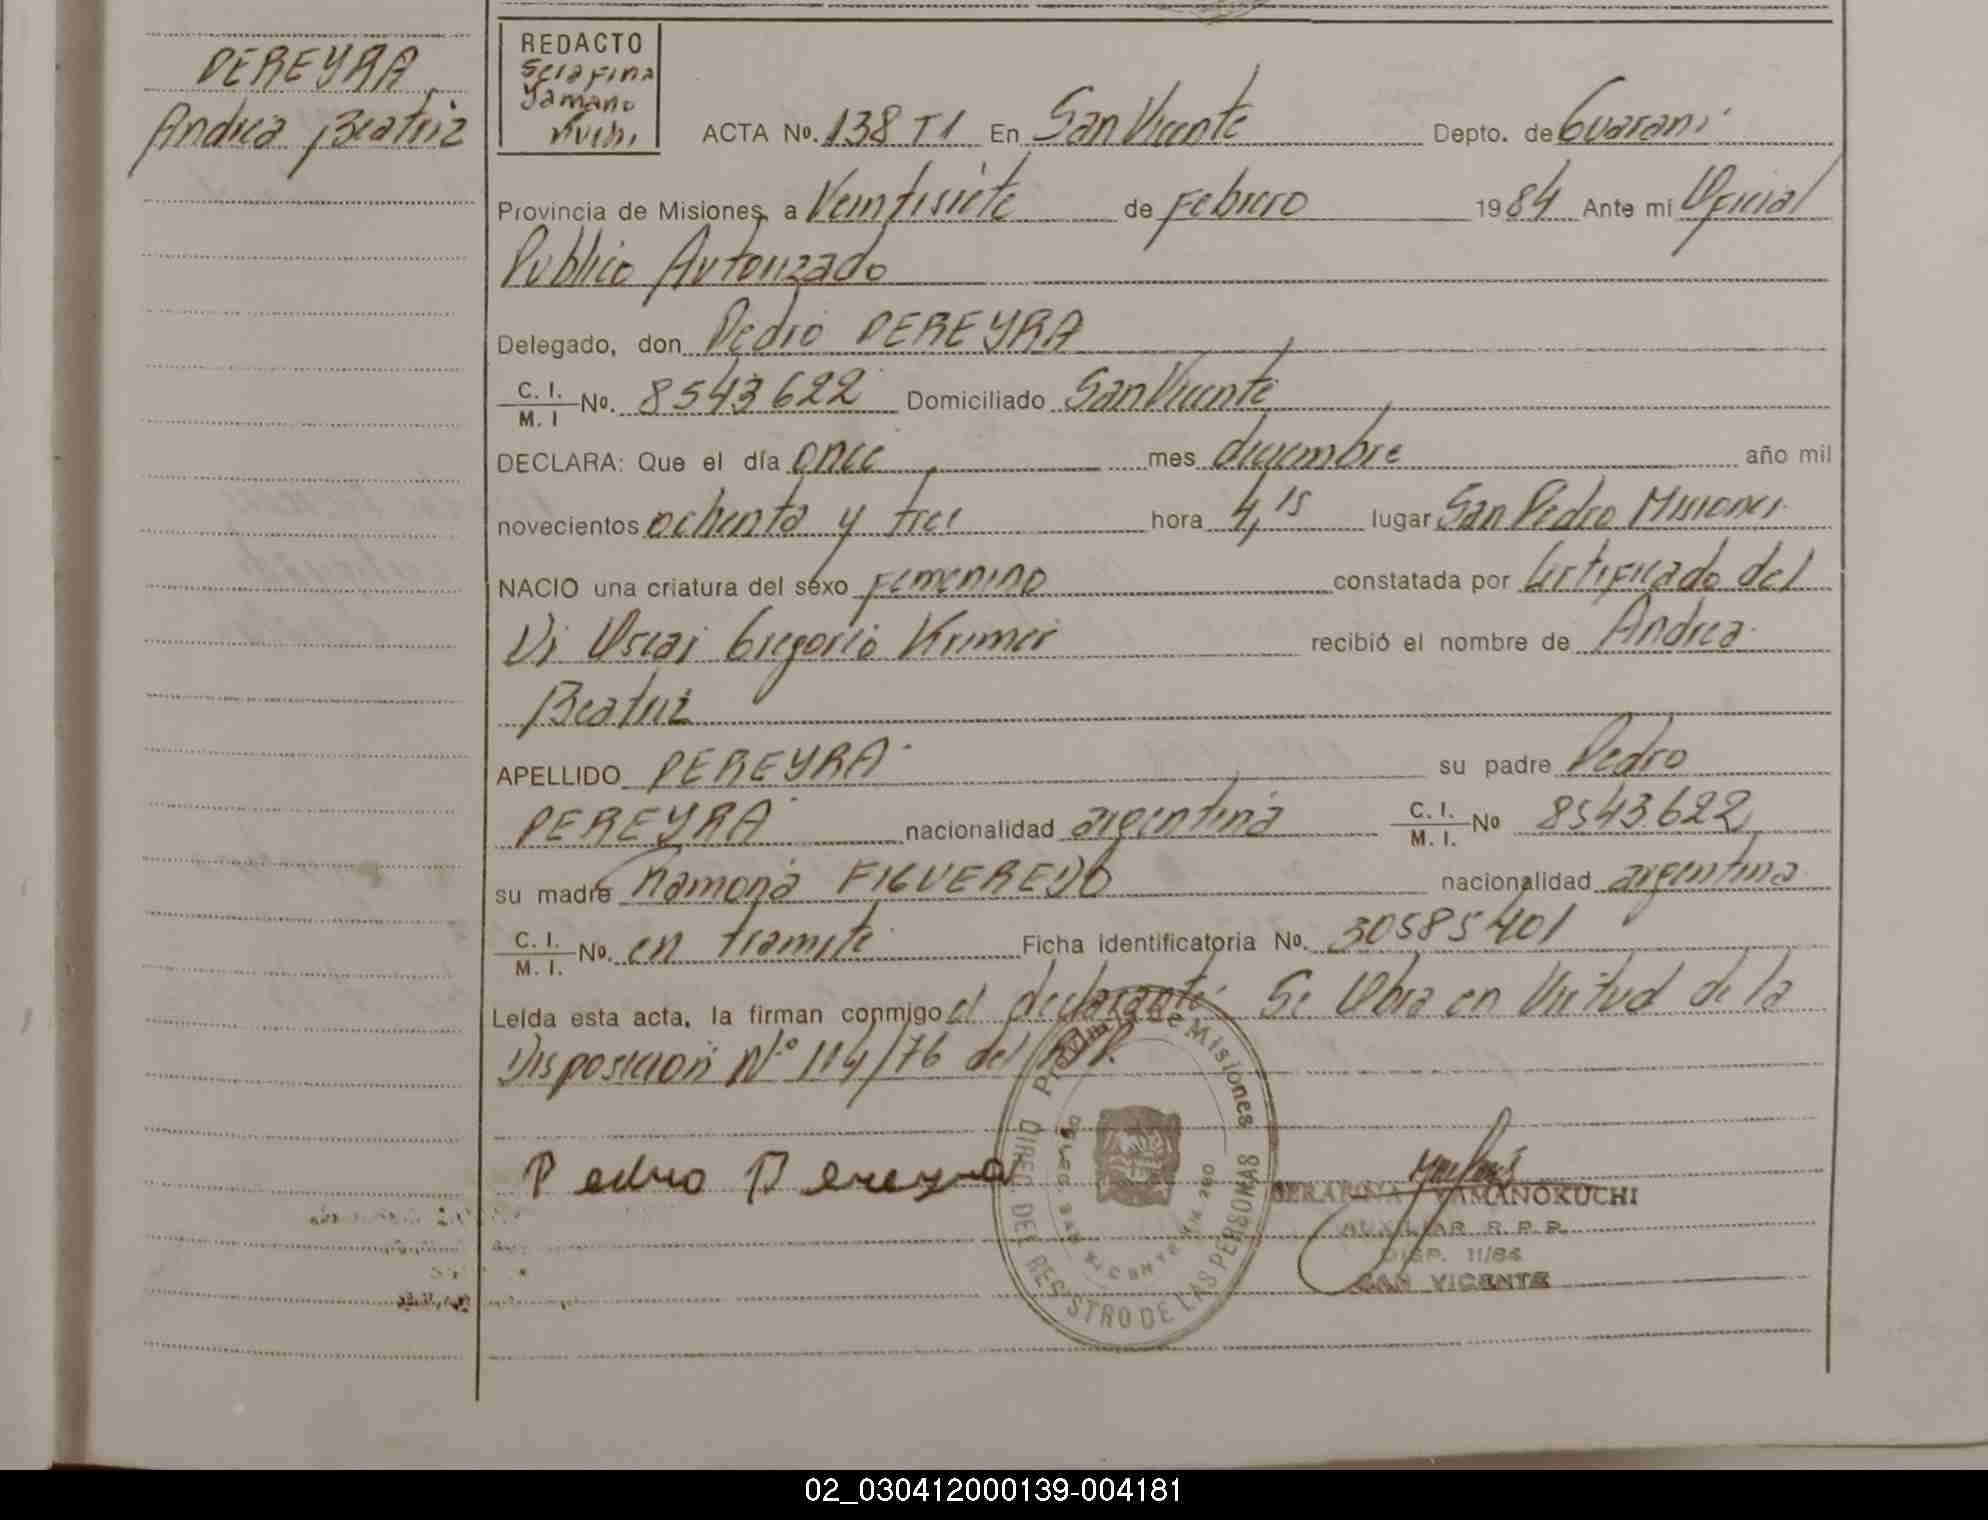 PEREYRA
Andrea Beatriz
REDACTO
Serafina
Yamano
Kuchi
ACTA No. 138 T1 En San Vicente Depto. de Guaraní
Provincia de Misiones, a Veintisiete de Febrero 1984 Ante mi Oficial
Publico Autorizado
Delegado, don Pedro PEREYRA
C. I. / M. I No. 8543622 Domiciliado San Vicente
DECLARA: Que el día once mes diciembre año mil
novecientos ochenta y tres hora 4,15 lugar San Pedro Misiones
NACIO una criatura del sexo Femenino constatada por Certificado del
Dr Oscar Gregorio Krimer recibió el nombre de Andrea
Beatriz
APELLIDO PEREYRA su padre Pedro
PEREYRA nacionalidad argentina C. I. / M. I. No 8543.622
su madre Ramona FIGUEREDO nacionalidad argentina
C. I. / M. I. No. en tramite Ficha identificatoria No. 30585401
Leída esta acta, la firman conmigo el declarante. Se Obra en Virtud de la
Disposicion N° 114/76 del
Provincia de Misiones
DIREC. DEL REGISTRO DE LAS PERSONAS
DELEG. SAN VICENTE
Pedro Pereyra
SERAFINA YAMANOKUCHI
AUXILIAR R. P. P.
DISP. 11/84
SAN VICENTE
02_030412000139-004181